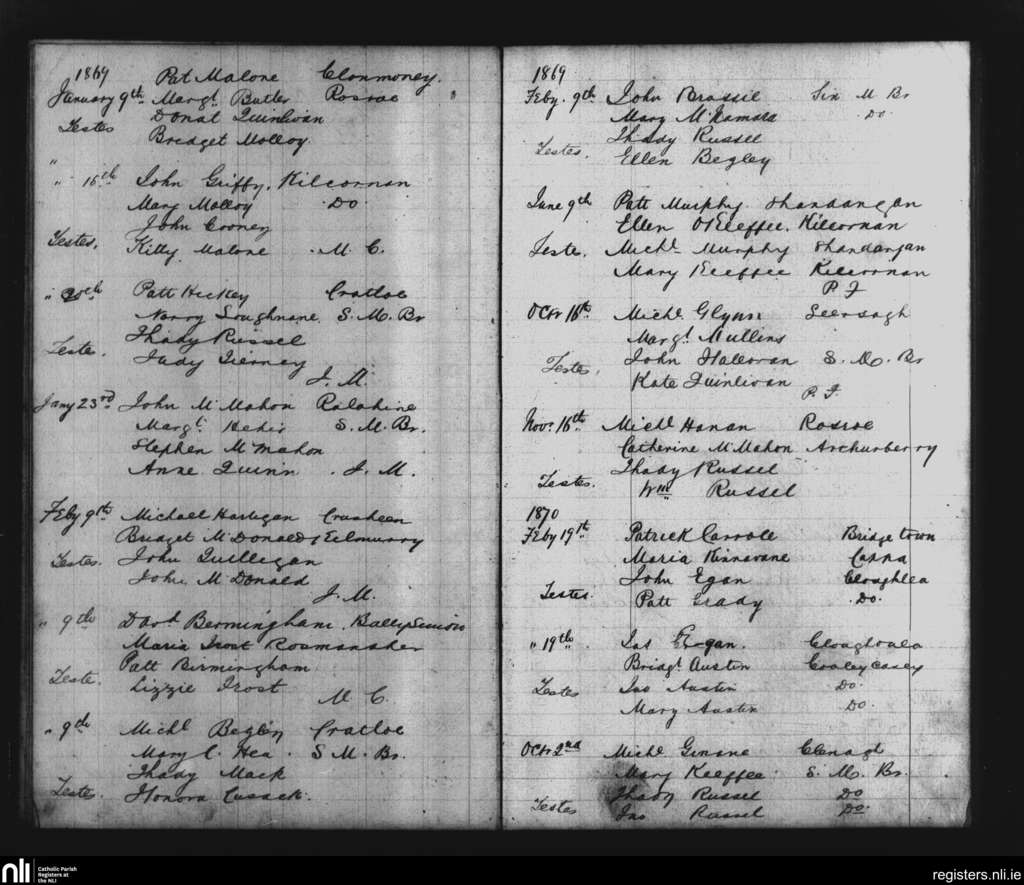 1869 Pat Malone Clonmoney.
January 9th Margt. Butler Rosroe
Donat Quinlivan
Testes Bridget Molloy.
" 15th John Griffy, Kilcornan
Mary Molloy Do.
John Cooney
Testes. Kitty Malone . M. C.
" 20th Patt Hickey Cratloe
Norry Loughnane. S. M. Br
Thady Russel
Teste. Judy Tierney
J. M.
Jany 23rd John McMahon Ralahine
Margt. Hehir S. M. Br.
Stephen McMahon
Anne Quinn . J. M.
Feby 9th Michael Hartigan Crusheen
Bridget McDonald
Testes. John Quilligan
John McDonald
J. M.
" 9th Davd Bermingham. Ballysimon
Maria Frost
Patt Birmingham
Teste. Lizzie Frost
M. C.
" 9th Michl Begley Cratloe
Mary C. Hea . S. M. Br.
Thady Mack
Teste. Honora Cusack.
1869
Feby. 9th John Brassil Six M Br
Mary McNamara Do.
Thady Russel
Testes. Ellen Begley
June 9th Patt Murphy. Shandangan
Ellen O'Keeffee. Kilcornan
Teste. Michl. Murphy Shandangan
Mary Keeffee Kilcornan
P. F
Octr 16th Michl. Glynn
Margt. Mullins
Testes. John Halloran S. M. Br
Kate Quinlivan
P. F.
Novr. 16th Michl Hanan Rosroe
Catherine McMahon
Thady Russel
Testes. Wm. Russel
1870
Feby 19th Patrick Carroll Bridgetown
Maria Kinnavane Cappa
John Egan Cloughlea
Testes. Patt Grady .Do.
" 19th. Jas Egan.
Bridgt. Austin Cooleycasey
Testes Jno Austin Do.
Mary Austin Do.
Octr 2nd Michl. Ginane Clenagh
Mary Keeffee. S. M. Br.
Thady Russel Do
Testes Jno Russel Do
nli Catholic Parish
Registers at
the NLI
registers.nli.ie